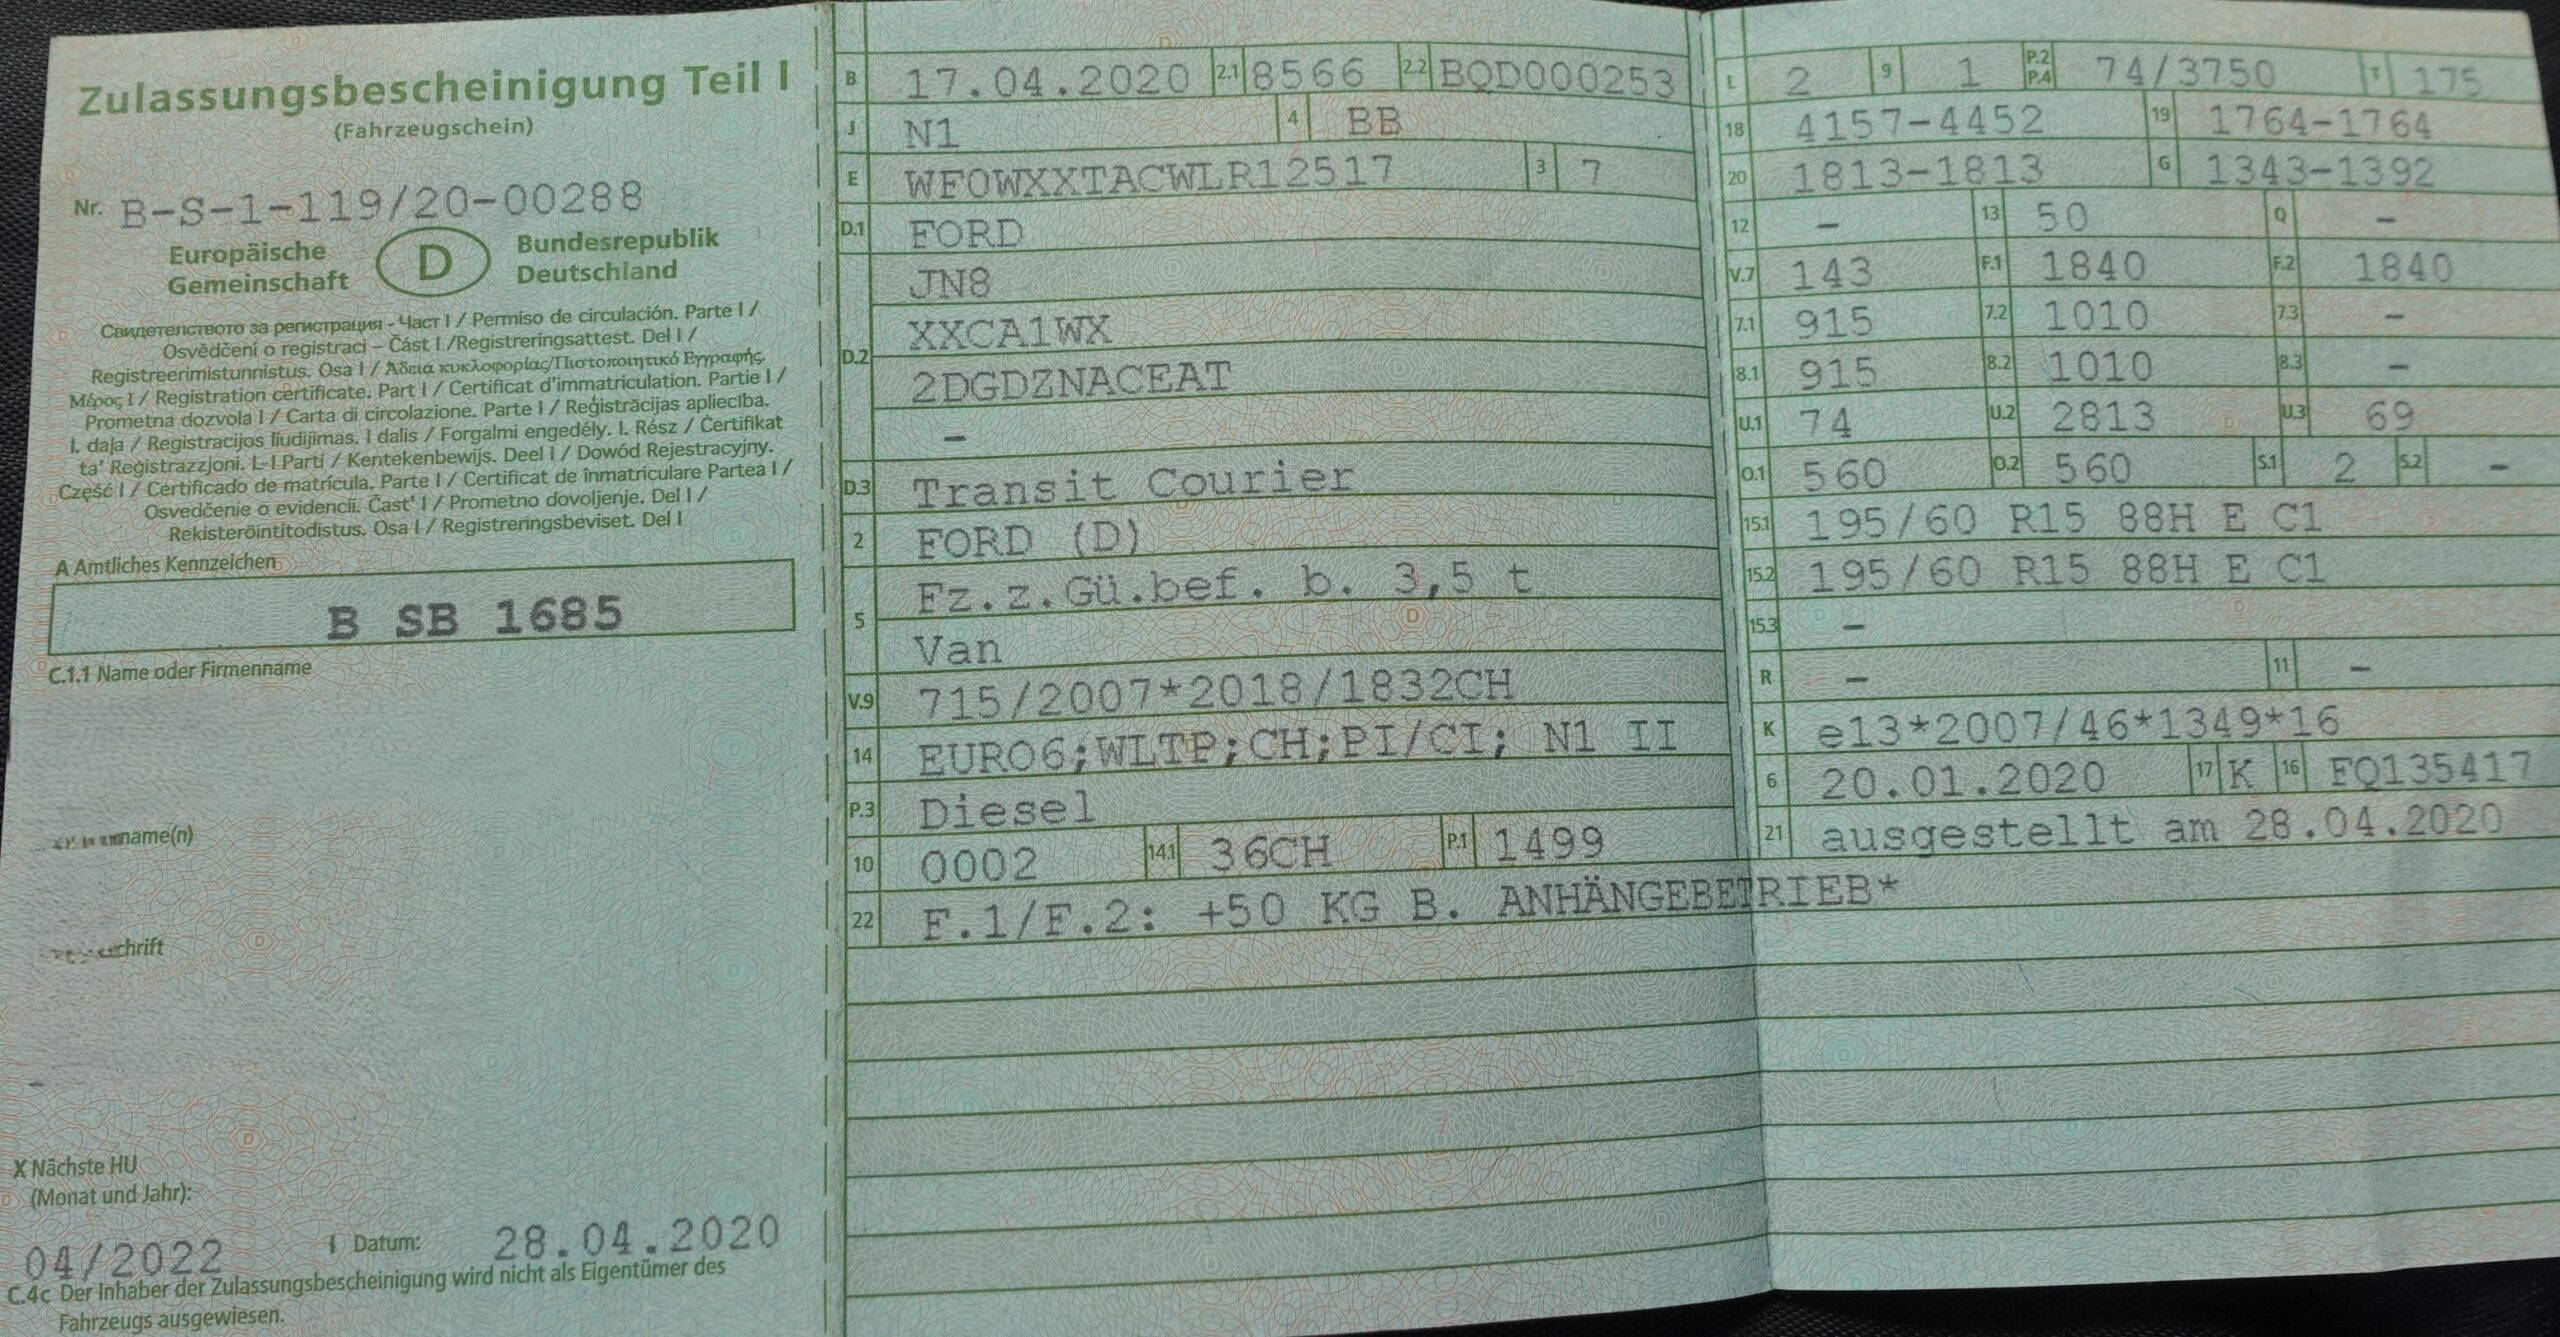 Zulassungsbescheinigung Teil I
(Fahrzeugschein)
Nr. B-S-1-119/20-00288
Europäische Gemeinschaft D Bundesrepublik Deutschland
Свидетелството за регистрация - Част I / Permiso de circulación. Parte I /
Osvědčení o registraci – Část I /Registreringsattest. Del I /
Registreerimistunnistus. Osa I / Άδεια κυκλοφορίας/Πιστοποιητικό Εγγραφής.
Μέρος I / Registration certificate. Part I / Certificat d'immatriculation. Partie I /
Prometna dozvola I / Carta di circolazione. Parte I / Reģistrācijas apliecība.
I. daļa / Registracijos liudijimas. I dalis / Forgalmi engedély. I. Rész / Ċertifikat
ta' Reġistrazzjoni. L-I Parti / Kentekenbewijs. Deel I / Dowód Rejestracyjny.
Część I / Certificado de matrícula. Parte I / Certificat de înmatriculare Partea I /
Osvedčenie o evidencii. Časť I / Prometno dovoljenje. Del I /
Rekisteröintitodistus. Osa I / Registreringsbeviset. Del I
A Amtliches Kennzeichen
B SB 1685
C.1.1 Name oder Firmenname
name(n)
chrift
X Nächste HU
(Monat und Jahr):
04/2022 I Datum: 28.04.2020
C.4c Der Inhaber der Zulassungsbescheinigung wird nicht als Eigentümer des
Fahrzeugs ausgewiesen.
B 17.04.2020 2.1 8566 2.2 BQD000253
J N1 4 BB
E WF0WXXTACWLR12517 3 7
D.1 FORD
JN8
XXCA1WX
D.2
2DGDZNACEAT
–
D.3 Transit Courier
2 FORD (D)
Fz.z.Gü.bef. b. 3,5 t
5
Van
V.9 715/2007*2018/1832CH
14 EURO6;WLTP;CH;PI/CI; N1 II
P.3 Diesel
10 0002 14.1 36CH P.1 1499
22 F.1/F.2: +50 KG B. ANHÄNGEBETRIEB*
L 2 9 1 P.2 P.4 74/3750 T 175
18 4157-4452 19 1764-1764
20 1813-1813 G 1343-1392
12 – 13 50 Q –
V.7 143 F.1 1840 F.2 1840
7.1 915 7.2 1010 7.3 –
8.1 915 8.2 1010 8.3 –
U.1 74 U.2 2813 U.3 69
O.1 560 O.2 560 S.1 2 S.2 –
15.1 195/60 R15 88H E C1
15.2 195/60 R15 88H E C1
15.3 –
R – 11 –
K e13*2007/46*1349*16
6 20.01.2020 17 K 16 FQ135417
21 ausgestellt am 28.04.2020